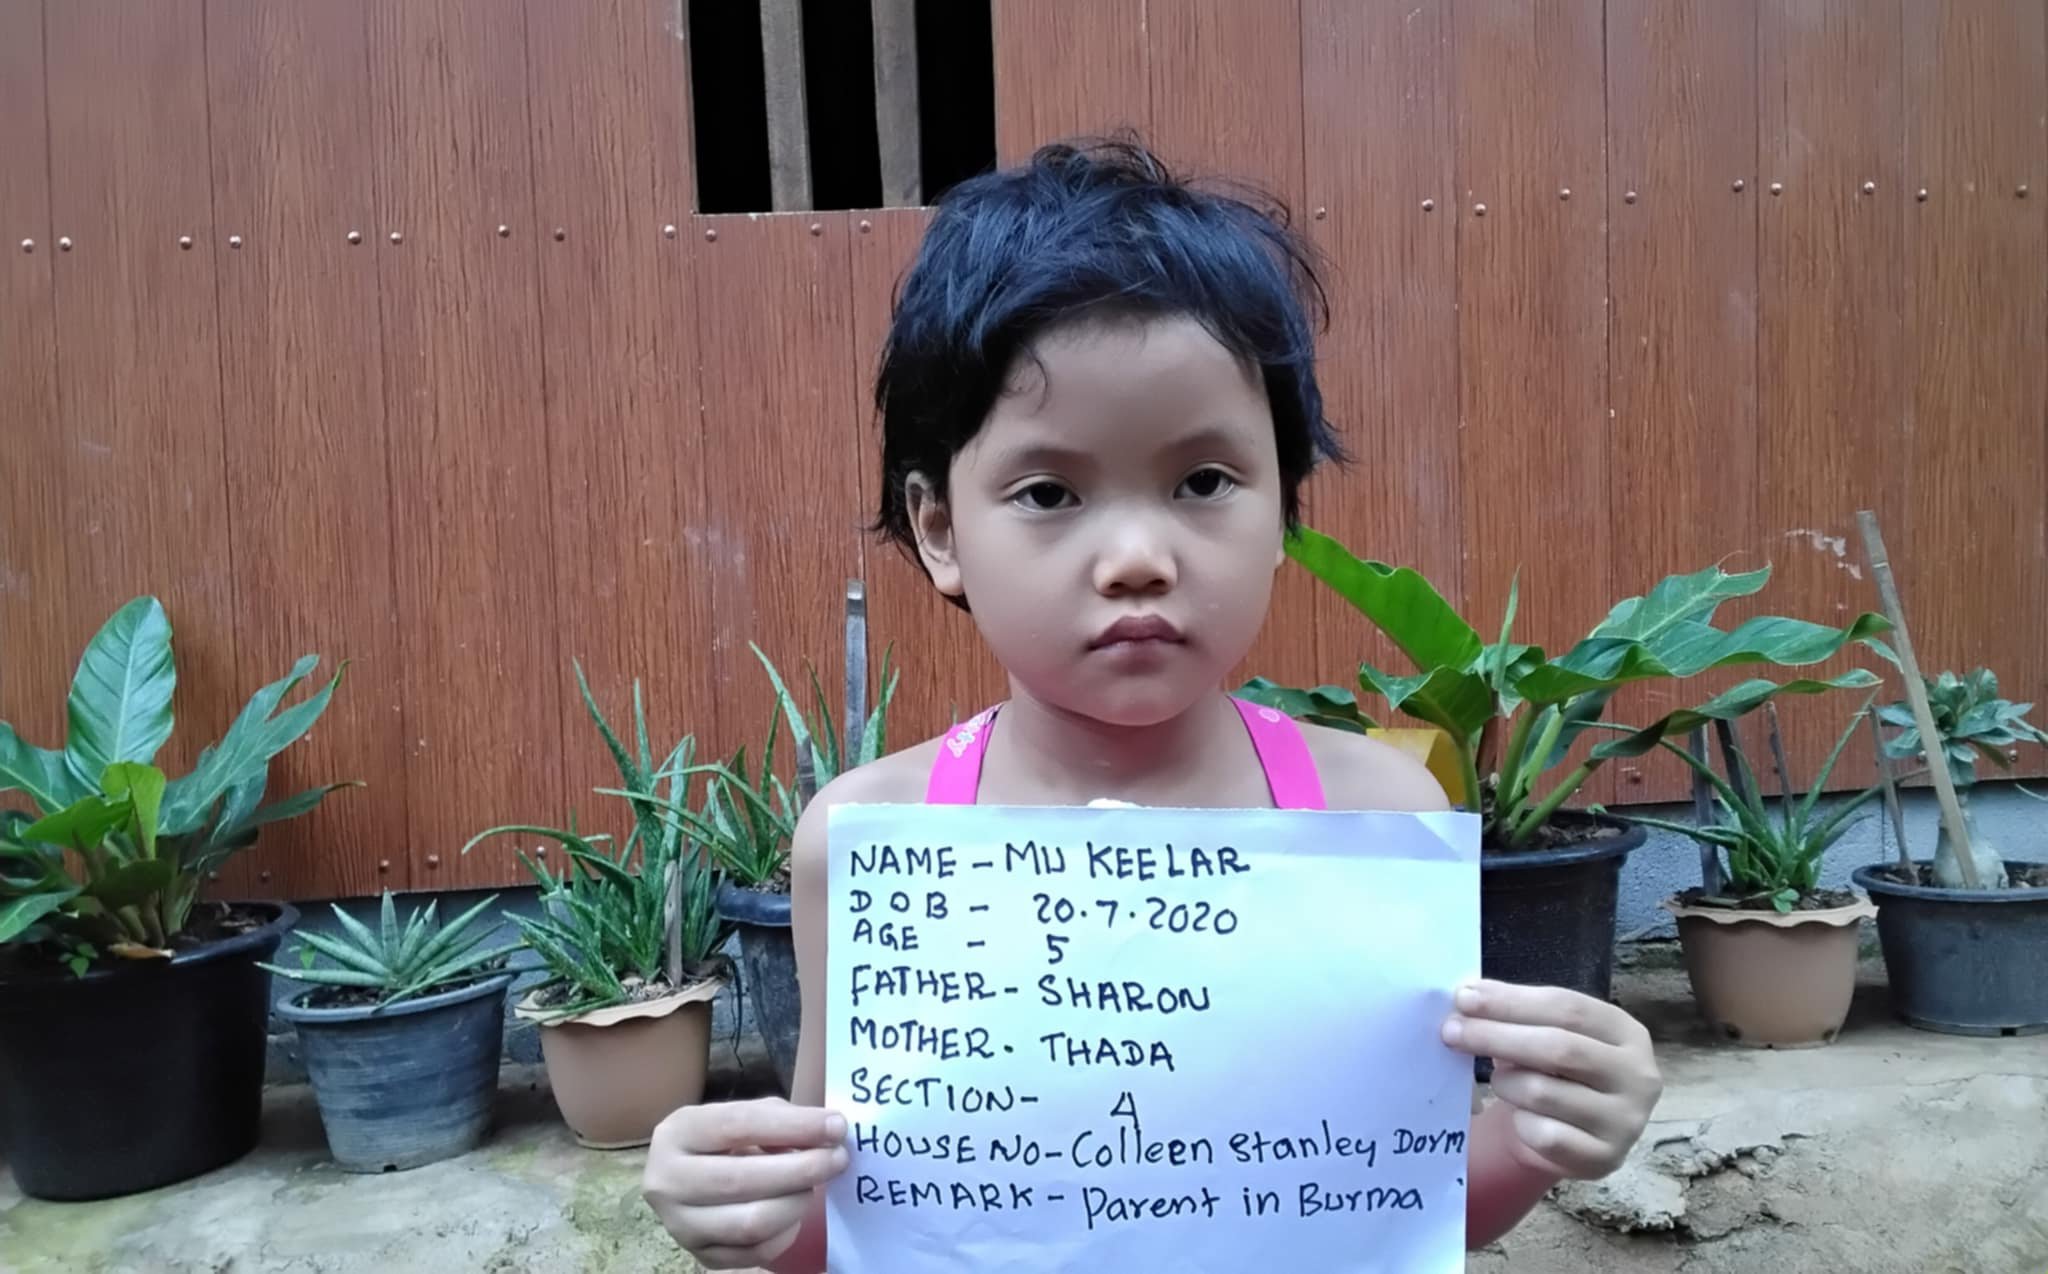 NAME - MU KEELAR
DOB - 20.7.2020
AGE - 5
FATHER - SHARON
MOTHER. THADA
SECTION - 4
HOUSE NO - Colleen Stanley Dorm
REMARK - Parent in Burma